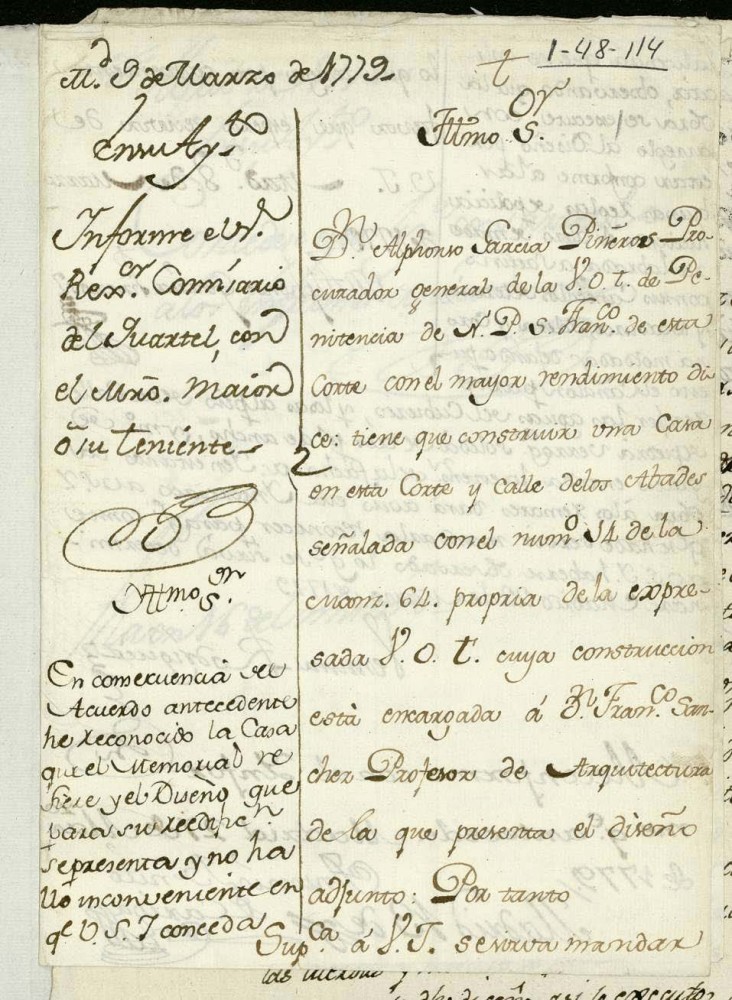 1-48-114
M.d 9 de Marzo de 1779
en su Ay.to
Informe el S.r
Rex.or Comisario
del Quartel, con
el Mro. maior
ò su teniente
Illmo S.or
En consecuencia del
Acuerdo antecedente
he reconocido la Casa
que el Memorial re
fiere y el Diseño que
para su reedific.n
se presenta y no ha
llo inconveniente en
q.e V. S. I conceda
Illmo S.or
D.n Alphonso Garcia Piñeros Pro-
curador general de la V. O. t. de Pe-
nitencia de N. P. S. Fran.co de esta
Corte con el mayor rendimiento di
ce: tiene que construir una Casa
en esta Corte y calle de los Abades
señalada con el num.o 14 de la
manz. 64. propria de la expre-
sada V. O. t. cuya construccion
està encargada á D.n Fran.co San-
chez Profesor de Arquitectura
de la que presenta el diseño
adjunto: Por tanto
Sup.ca á V. I. se sirva mandar